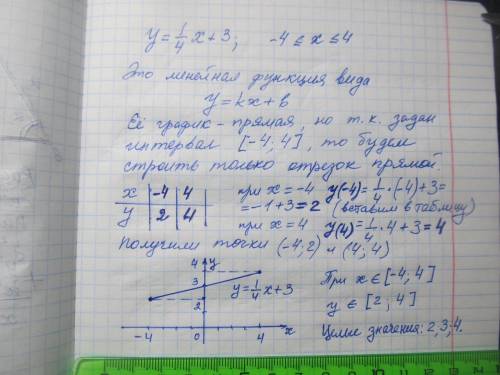 y=1/4x+3; -4≤x≤4
Это линейная функция вида
y=kx+b
Её график - прямая, но т.к. задан
интервал [-4; 4], то будем
строить только отрезок прямой.
x | -4 | 4 при x=-4 y(-4)=1/4·(-4)+3=
=-1+3=2 (вставим в таблицу)
y | 2 | 4 при x=4 y(4)=1/4·4+3=4
Получили точки (-4;2) и (4; 4)
4 y
3 y=1/4x+3
2
-4 0 4 x
При x∈[-4; 4]
y∈[2; 4]
Целые значения: 2,3,4.
0 1 2 3 4 5 6 7 8 9 10 11 12 13